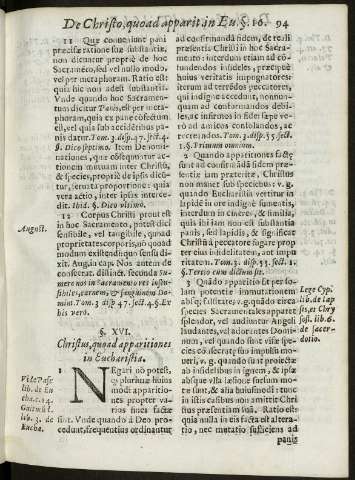 De Christo, quoad apparit. in Eu. §. 16. 94
11 Quæ conueniunt pani
præcisæ ratione suæ substantiæ,
non dicuntur propriè de hoc
Sacramẽto, sed vel nullo modo,
vel per metaphoram. Ratio est
quia hic non adest substantia.
Vnde quando hoc Sacramen-
tum dicitur Panis, est per meta-
phoram, quia ex pane cõfectum
est, vel quia sub accidentibus pa-
nis datur. Tom. 3. disp. 47. sect. 4.
§. Dico septimo. Item Denomi-
nationes, quæ consequuntur
actionem mutuam inter Christũ,
& species, propriè de ipsis dicũ-
tur, seruata proportione: quia
vera actio, inter ipsos interce-
dit. Ibid. §. Dico vltimo.
12 Corpus Christi prout est
in hoc Sacramento, potest dici
sensibile, vel tangibile, quoad
proprietates corporis, nõ quoad
modum existendi: quo sensu di-
xit. Augustin. cap. Nos autem de
consecrat. distinct. secunda Su-
mimus in Sacramento rei insen-
sibilem, carnem, & sanguinem Do-
mini. Tom 3 disp. 47. sect. 4. §. Ex
his verò.
August.
§. XVI.
Christus, quoad apparitiones
in Eucharistia.
1 NEgari nõ potest,
quin plurimæ huius
modi apparitio-
nes propter va-
rias fines factæ
sint. Vnde quando à Deo pro-
cedunt, frequentius ordinantur
Vide Pas-
ch. lib. de Eu
cha. c. 14.
Guitmũ l.
lib. 3. de
Eucha.
ad confirmandã fidem, de reali
præsentia Christi in hoc Sacra-
mento: interdum etiam ad cõ-
fundendos infideles, præcipuè
huius veritatis impugnatores:
iterum ad terrẽdos peccatores,
qui indigne accedunt, nonnun-
quam ad confortandos debi-
les, ac infirmos in fide: sæpe ve-
rò ad amicos consolandos, ac
recreandos. Tom. 3. disp. 55. sect.
1. §. Primum omnium.
2 Quando apparitiones factę
sunt ad confirmãdã fidem præ-
sentiæ iam præteritæ, Christus
non manet sub speciebus: v. g.
quando Eucharistia vertitur in
lapidẽ ob in ore indignè sumẽtis,
interdum in cinerẽ, & similia,
quia ibi iam non est substantia
panis, sed lapidis, & significat
Christũ à peccatore fugare prop
ter eius infidelitatem, aut im-
pietatem. Tom. 3. disp. 55. sect. 1.
§. Tertio cum dictum sit.
3 Quãdo apparitio fit per so-
lam potentiæ immutationem
absq; falsitate; v. g. quãdo circa
species Sacramentales apparet
splendor, vel audiuntur Angeli
laudantes, vel adorantes Domi-
num, vel quando visæ sint spe-
cies eò secretæ suo impulsu mo-
ueri, v. g. quando sunt proiectæ
ab infidelibus in ignem, & ipsæ
absque vlla læsione sursum mo-
tæ sint, & alia huiusmodi: tunc
in istis casibus non amittit Chri
stus præsentiam suã. Ratio est:
quia nulla in eis facta est altera-
tio, nec mutatio sufficiens ad
panis
Lege Cyp.
lib. de lap
sis, et Chry
sost. lib. 6.
de sacer-
dotio.